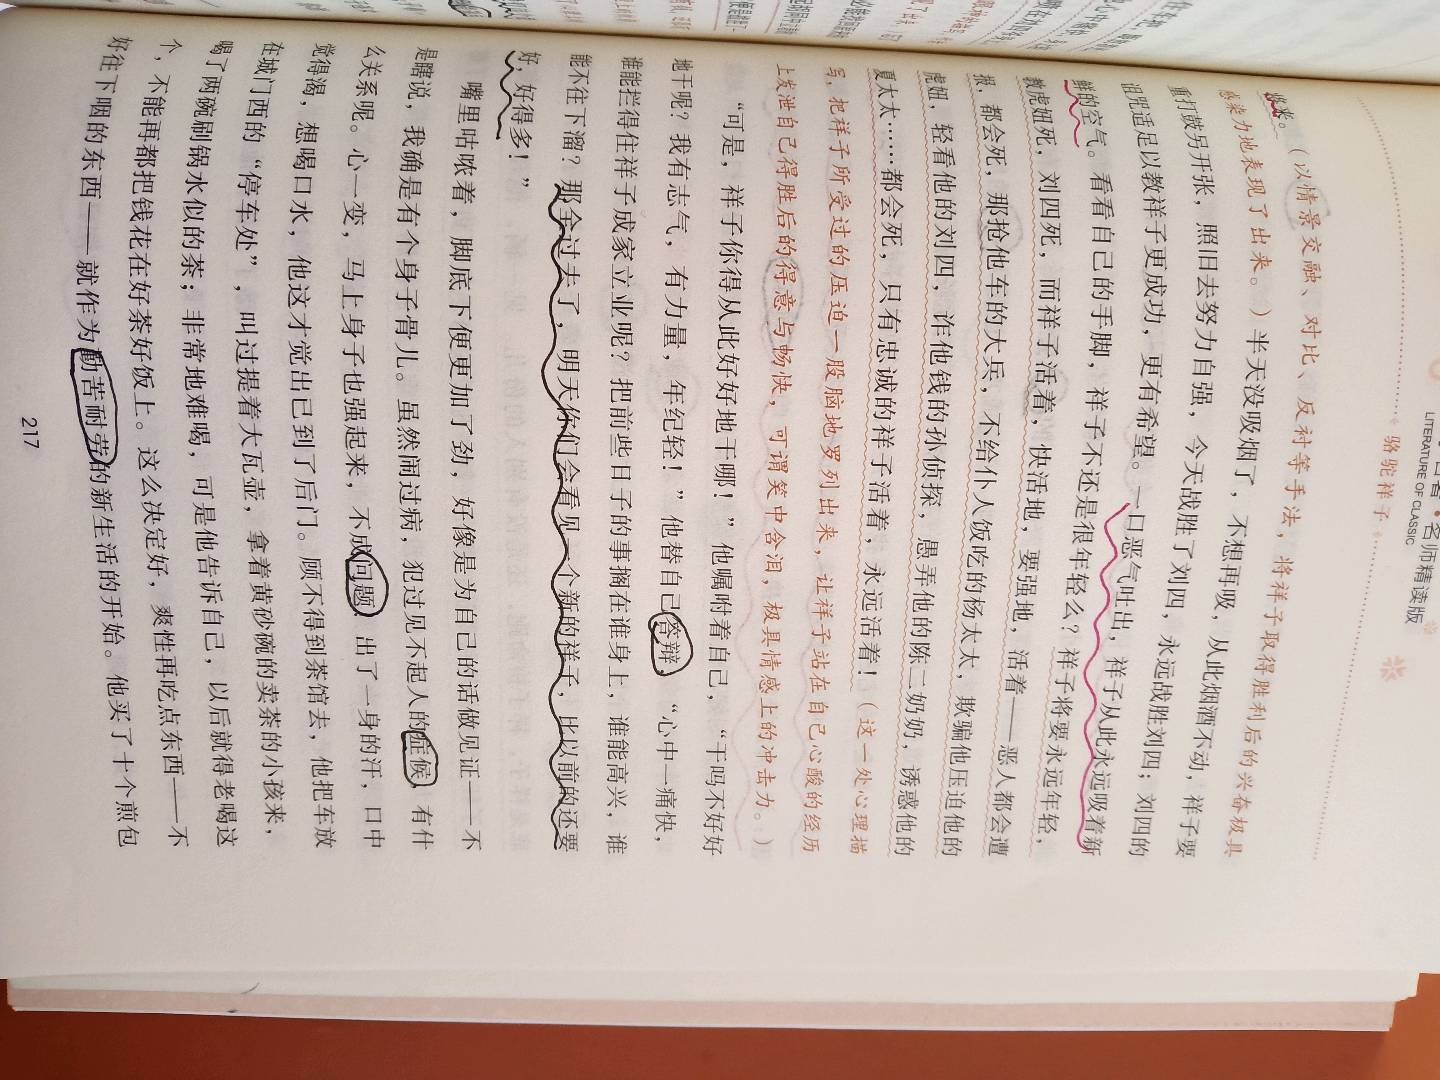 名著·名师精读版
LITERATURE OF CLASSIC
骆驼祥子
将来。（以情景交融、对比、反衬等手法，将祥子取得胜利后的兴奋极具
感染力地表现了出来。）半天没吸烟了，不想再吸，从此烟酒不动，祥子要
重打鼓另开张，照旧去努力自强，今天战胜了刘四，永远战胜刘四；刘四的
诅咒适足以教祥子更成功，更有希望。一口恶气吐出，祥子从此永远吸着新
鲜的空气。看看自己的手脚，祥子不还是很年轻么？祥子将要永远年轻，
教虎妞死，刘四死，而祥子活着，快活地，要强地，活着——恶人都会遭
报，都会死，那抢他车的大兵，不给仆人饭吃的杨太太，欺骗他压迫他的
虎妞，轻看他的刘四，诈他钱的孙侦探，愚弄他的陈二奶奶，诱惑他的
夏太太……都会死，只有忠诚的祥子活着，永远活着！（这一处心理描
写，把祥子所受过的压迫一股脑地罗列出来，让祥子站在自己心酸的经历
上发泄自己得胜后的得意与畅快，可谓笑中含泪，极具情感上的冲击力。）
“可是，祥子你得从此好好地干哪！”他嘱咐着自己，“干吗不好好
地干呢？我有志气，有力量，年纪轻！”他替自己答辩，“心中一痛快，
谁能拦得住祥子成家立业呢？把前些日子的事搁在谁身上，谁能高兴，谁
能不往下溜？那全过去了，明天你们会看见一个新的祥子，比以前的还要
好，好得多！”
嘴里咕哝着，脚底下便更加了劲，好像是为自己的话做见证——不
是瞎说，我确是有个身子骨儿。虽然闹过病，犯过见不起人的症候，有什
么关系呢。心一变，马上身子也强起来，不成问题！出了一身的汗，口中
觉得渴，想喝口水，他这才觉出已到了后门。顾不得到茶馆去，他把车放
在城门西的“停车处”，叫过提着大瓦壶，拿着黄砂碗的卖茶的小孩来，
喝了两碗刷锅水似的茶；非常地难喝，可是他告诉自己，以后就得老喝这
个，不能再都把钱花在好茶好饭上。这么决定好，爽性再吃点东西——不
好往下咽的东西——就作为勤苦耐劳的新生活的开始。他买了十个煎包
217